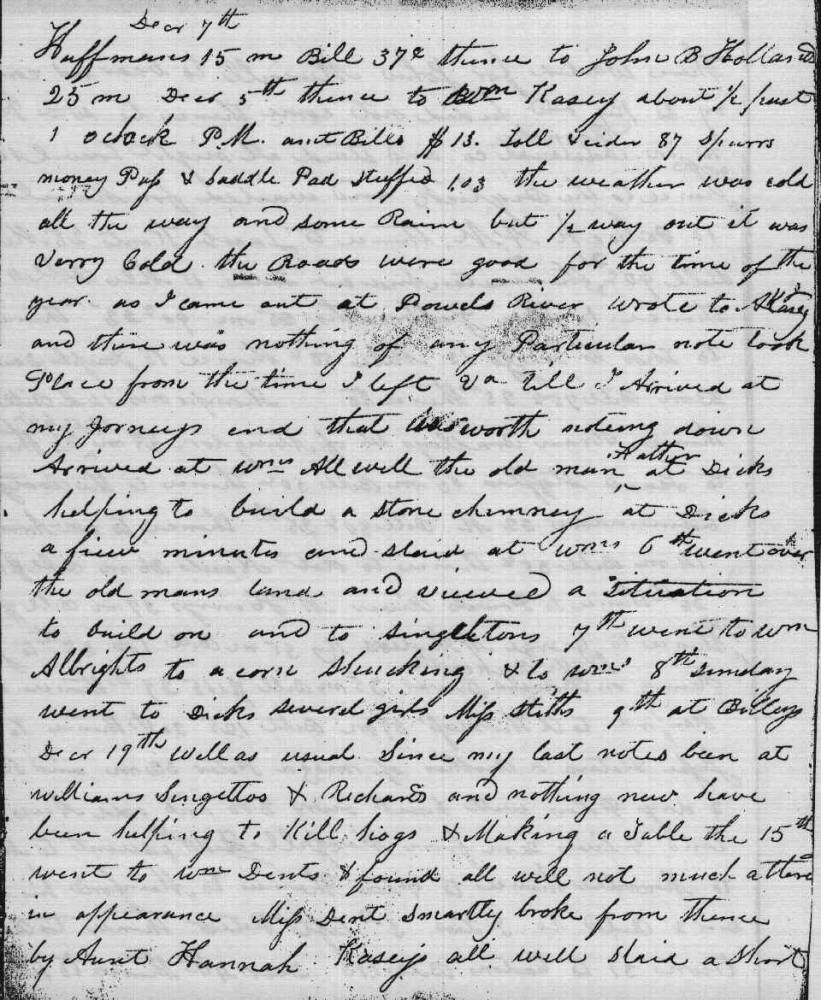 Decr 7th
Huffmans 15 m Bill 37c thence to John B Hollands
25 m Decr 5th thence to Wm Kasey about 1/2 past
1 oclock P.M. amt Bills $ 13. Toll & cider 87 Spurrs
money Pass & Saddle Pad stuffed 1.03 the weather was cold
all the way and some Raine but 1/2 way out it was
Verry Cold the Roads were good for the time of the
year. as I came out at Powels River wrote to A Kasey
and there was nothing of any Particular note took
Place from the time I left Va till I Arrived at
my Jorneys end that was worth noteing down
Arrived at Wms All well the old man Father at Dicks
helping to build a stone chimney at Dicks
a fiew minutes and staid at Wms 6th went over
the old mans land and viewed a Situation
to build on and to Singletons 7th went to Wm
Albrights to a corn Shucking & to Wms 8th Sunday
went to Dicks several girls Miss Stiths 9th at Billeys
Decr 19th Well as usual Since my last notes been at
Williams Singettos & Richards and nothing new have
been helping to Kill hogs & Making a Table the 15th
went to Wm Dents & found all well not much altered
in appearance Miss Dent Smartly broke from thence
by Aunt Hannah Kaseys all well Staid a Short